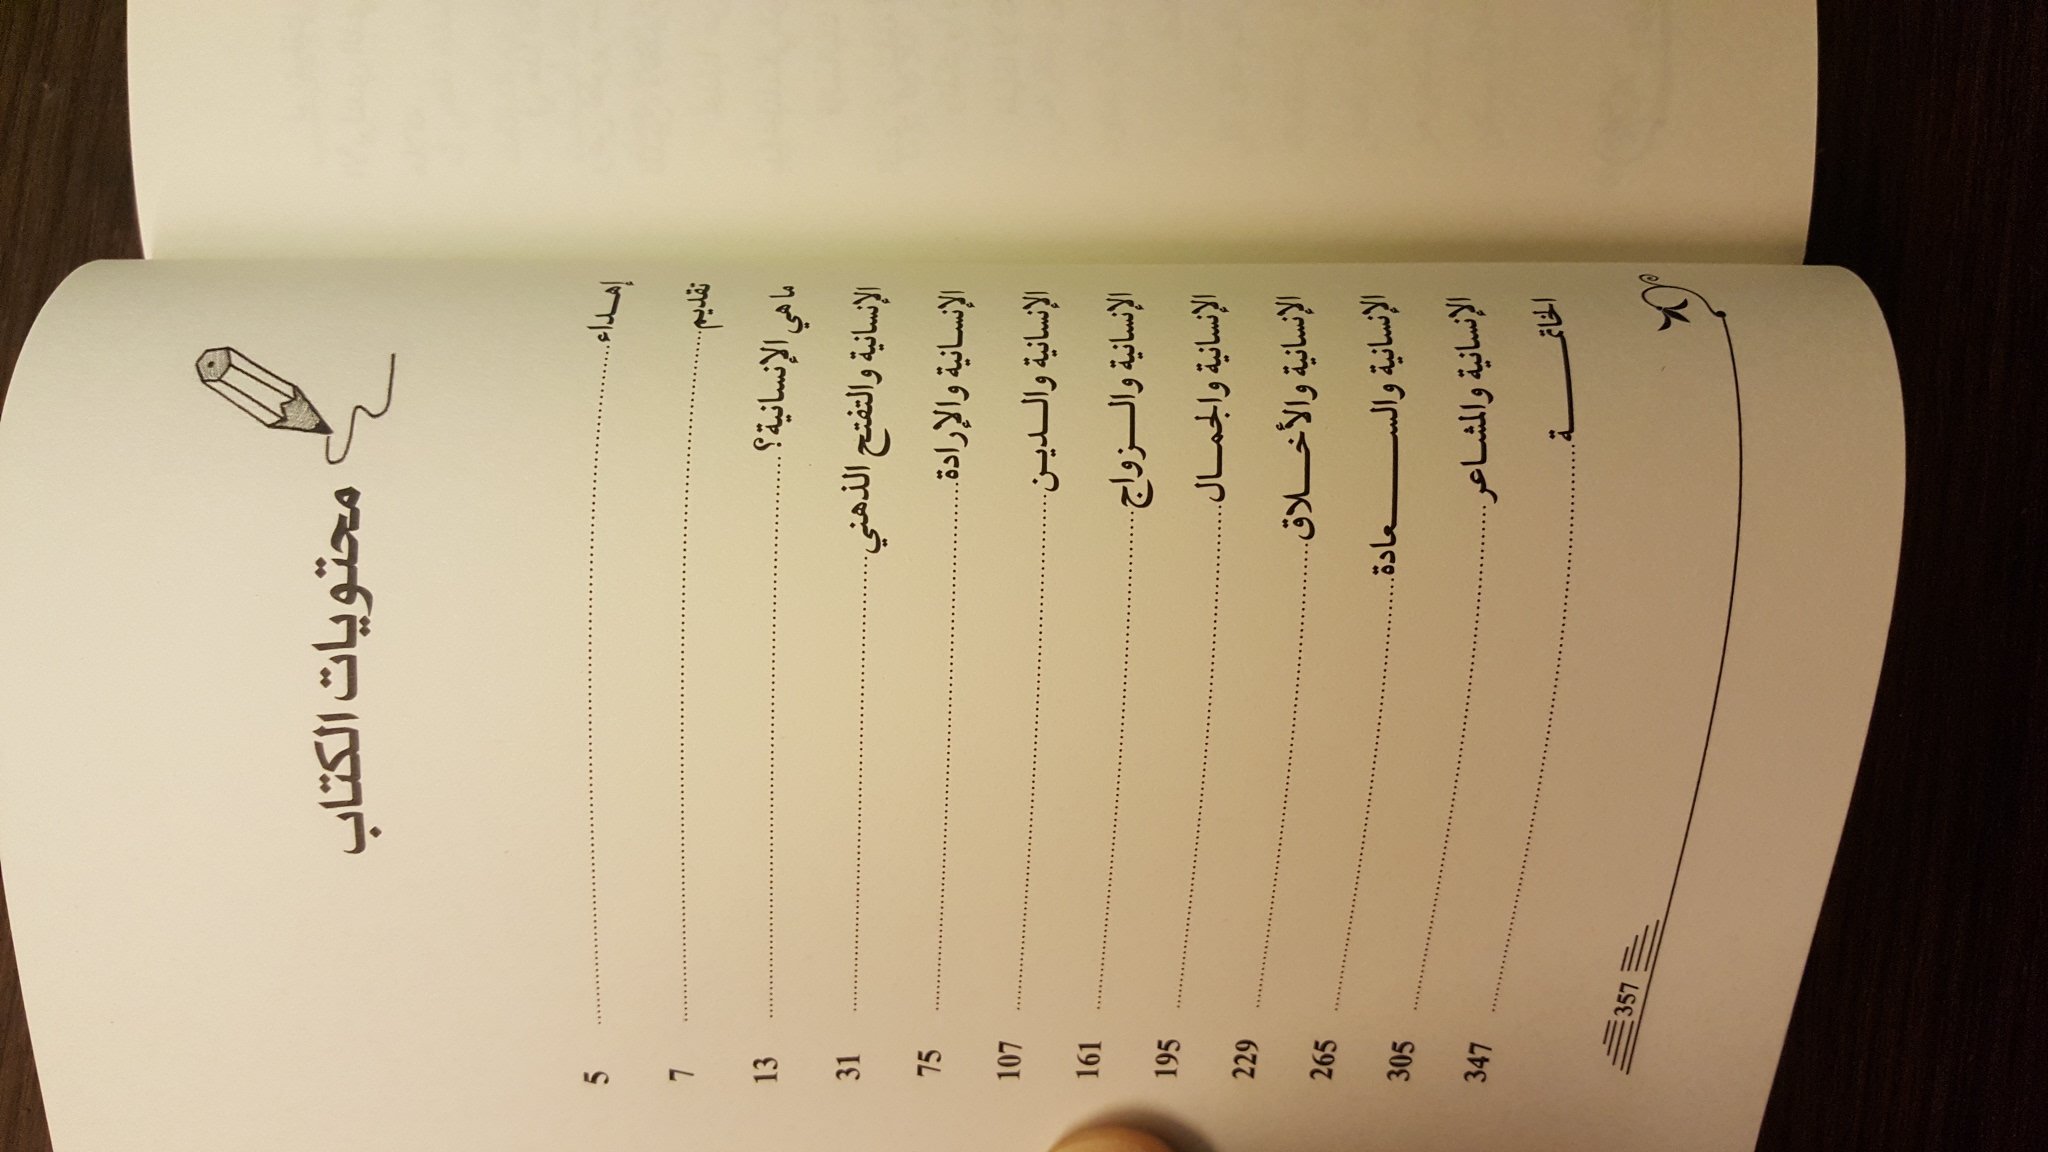 محتويات الكتاب
إهـداء ........ 5
تقديم ........ 7
ما هي الإنسانية؟ ........ 13
الإنسانية والتفتح الذهني ........ 31
الإنسـانية والإرادة ........ 75
الإنسانية والـديـن ........ 107
الإنسانية والــزواج ........ 161
الإنسانية والجمــال ........ 195
الإنسانية والأخــلاق ........ 229
الإنسانية والســـعادة ........ 265
الإنسانية والمشـاعر ........ 305
الخاتمــــة ........ 347
357